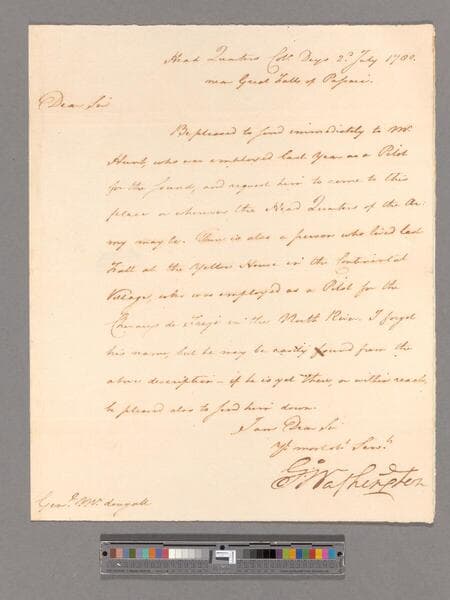 Head Quarters Colo. Deys 2d. July 1780.
near Great Falls of Passaic.
Dear Sir
Be pleased to send immediately to Mr.
Hunt, who was employed last Year as a Pilot
for the Sound, and request him to come to this
place or wherever the Head Quarters of the Ar-
my may be. There is also a person who lived last
Fall at the Yellow House in the Continental
Village, who was employed as a Pilot for the
Chevaux de Frize in the North River. I forget
his name, but he may be easily found from the
above description – if he is yet there, or within reach,
be pleased also to send him down.
I am Dear Sir
Yr. most obt. Servt.
Go. Washington
Genl. McDougall